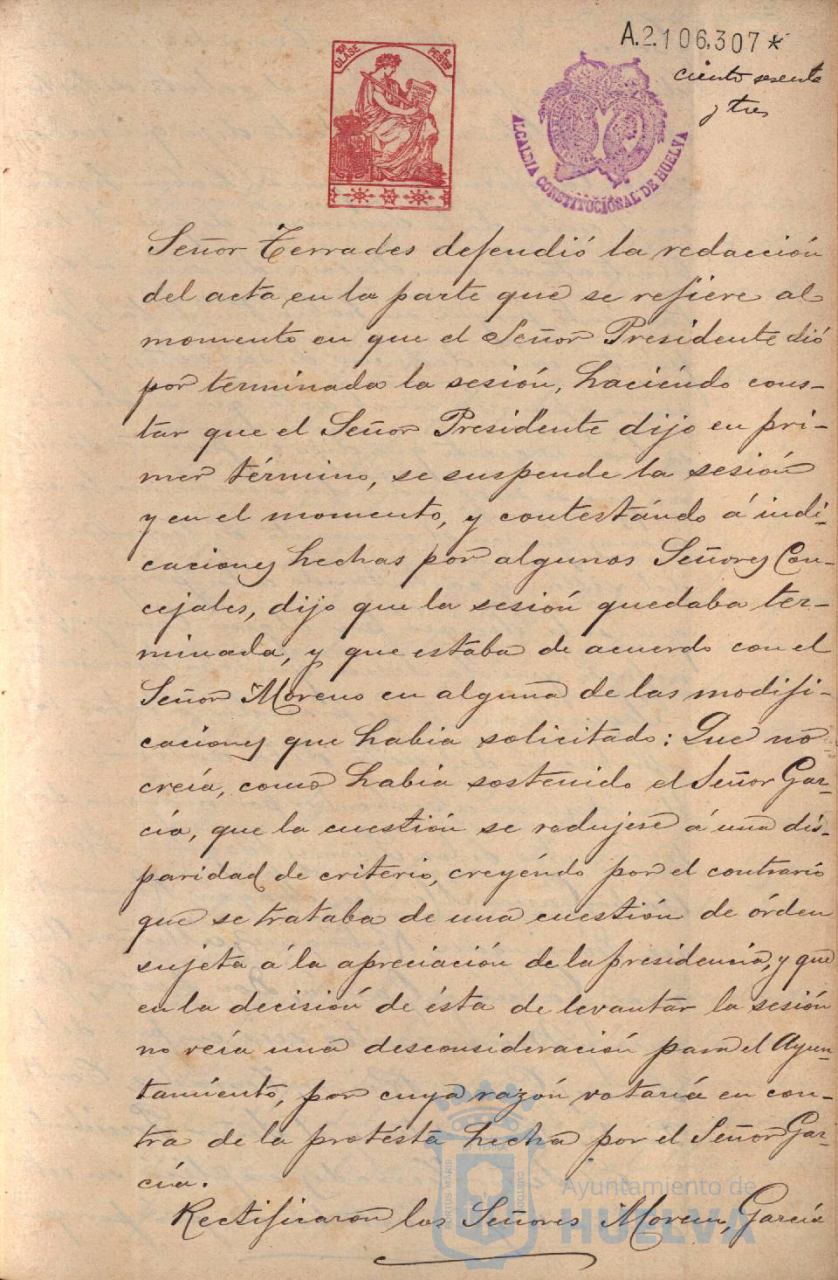 A.2.106.307*
ciento sesenta
y tres
10ª CLASE
2 PESETAS
ALCALDIA CONSTITUCIONAL DE HUELVA
Señor Terrades defendió la redacción
del acta en la parte que se refiere al
momento en que el Señor Presidente dió
por terminada la sesión, haciéndo cons-
tar que el Señor Presidente dijo en pri-
mer término, se suspende la sesión
y en el momento, y contestándo á indi-
caciones hechas por algunos Señores Con-
cejales, dijo que la sesión quedaba ter-
minada, y que estaba de acuerdo con el
Señor Moreno en alguna de las modifi-
caciones que habia solicitado: Que no
creía, como habia sostenido el Señor Gar-
cía, que la cuestión se redujese á una dis-
paridad de criterio, creyéndo por el contrario
que se trataba de una cuestión de órden
sujeta á la apreciación de la presidencia, y que
en la decisión de ésta de levantar la sesión
no veía una desconsideración para el Ayun-
tamiento, por cuya razón votaría en con-
tra de la protésta hecha por el Señor Gar-
cía.
Rectificaron los Señores Moreno, García
Ayuntamiento de
HUELVA